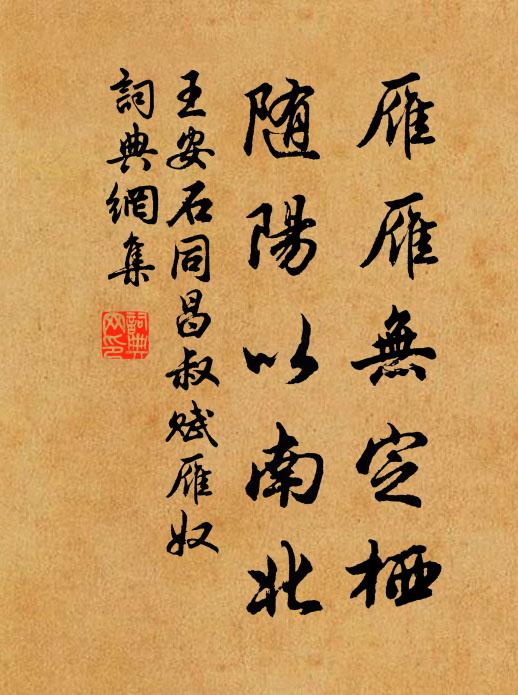 雁雁無定栖
随陽以南北
王安石同昌叔赋雁奴
詞典網集
詞典網印